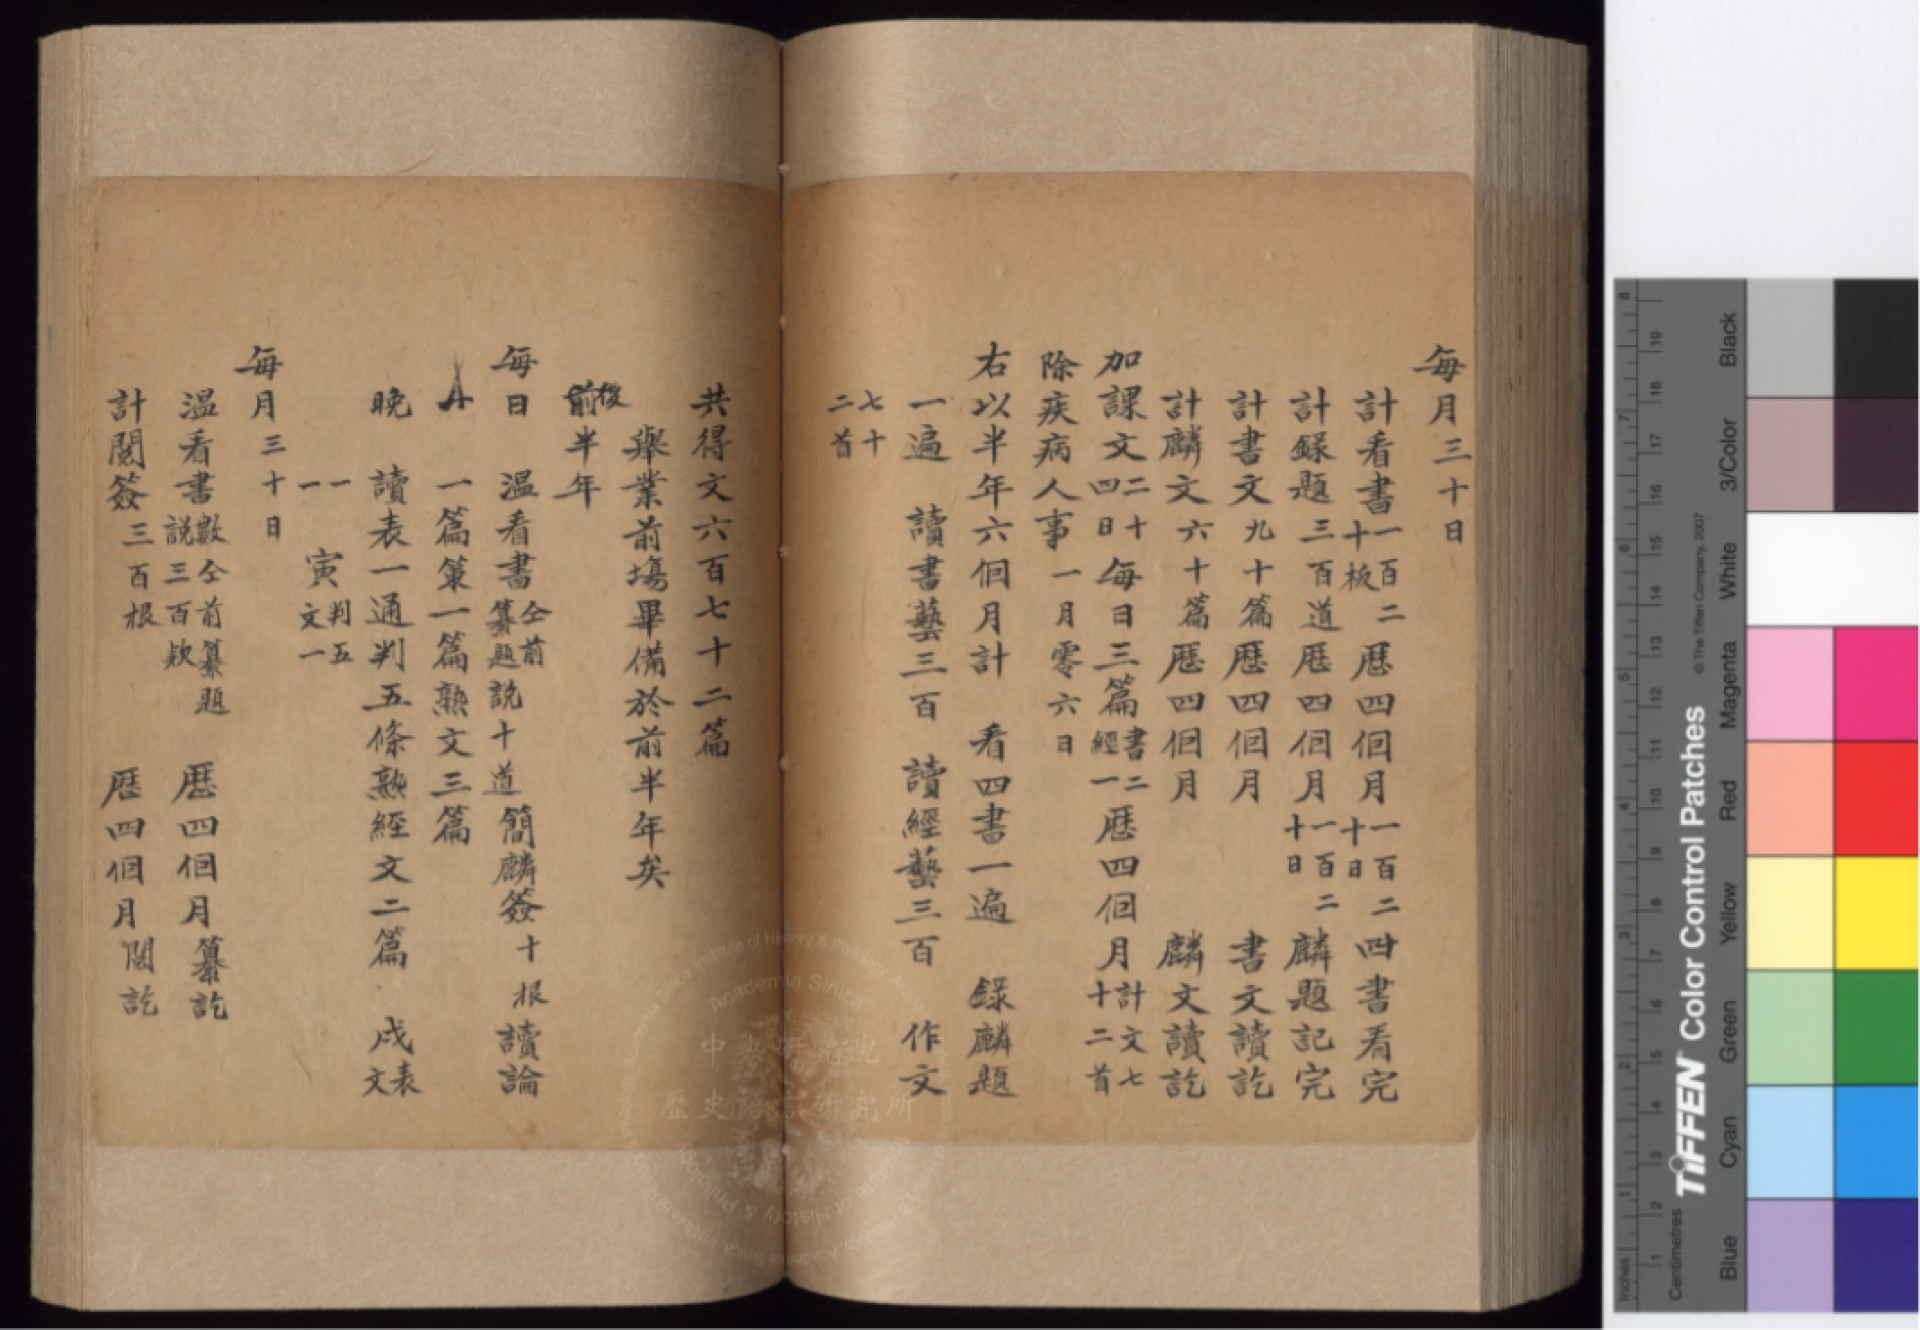 每月三十日
計看書一百二十板 歷四個月一百二十日 四書看完
計録題三百道 歷四個月一百二十日 麟題記完
計書文九十篇 歷四個月 書文讀訖
計麟文六十篇 歷四個月 麟文讀訖
加課文二十四日 每日三篇書二經一 歷四個月計文七十二首
除疾病人事 一月零六日
右以半年六個月計 看四書一遍 録麟題
一遍 讀書藝三百 讀經藝三百 作文
七十二首
共得文六百七十二篇
舉業前塲畢備於前半年矣
後半年
每日 溫看書仝前纂題說十道 簡麟簽十根 讀論
一篇策一篇熟文三篇
晚 讀表一通判五條熟經文二篇 戌表文
一一 寅判五文一
每月三十日
溫看書數仝前纂題說三百欵 歷四個月纂訖
計閱簽三百根 歷四個月閱訖
中央研究院
歷史語言研究所
Academia Sinica
Institute of History & Philology
TIFFEN Color Control Patches
© The Tiffen Company, 2007
Centimetres
Inches
Blue
Cyan
Green
Yellow
Red
Magenta
White
3/Color
Black